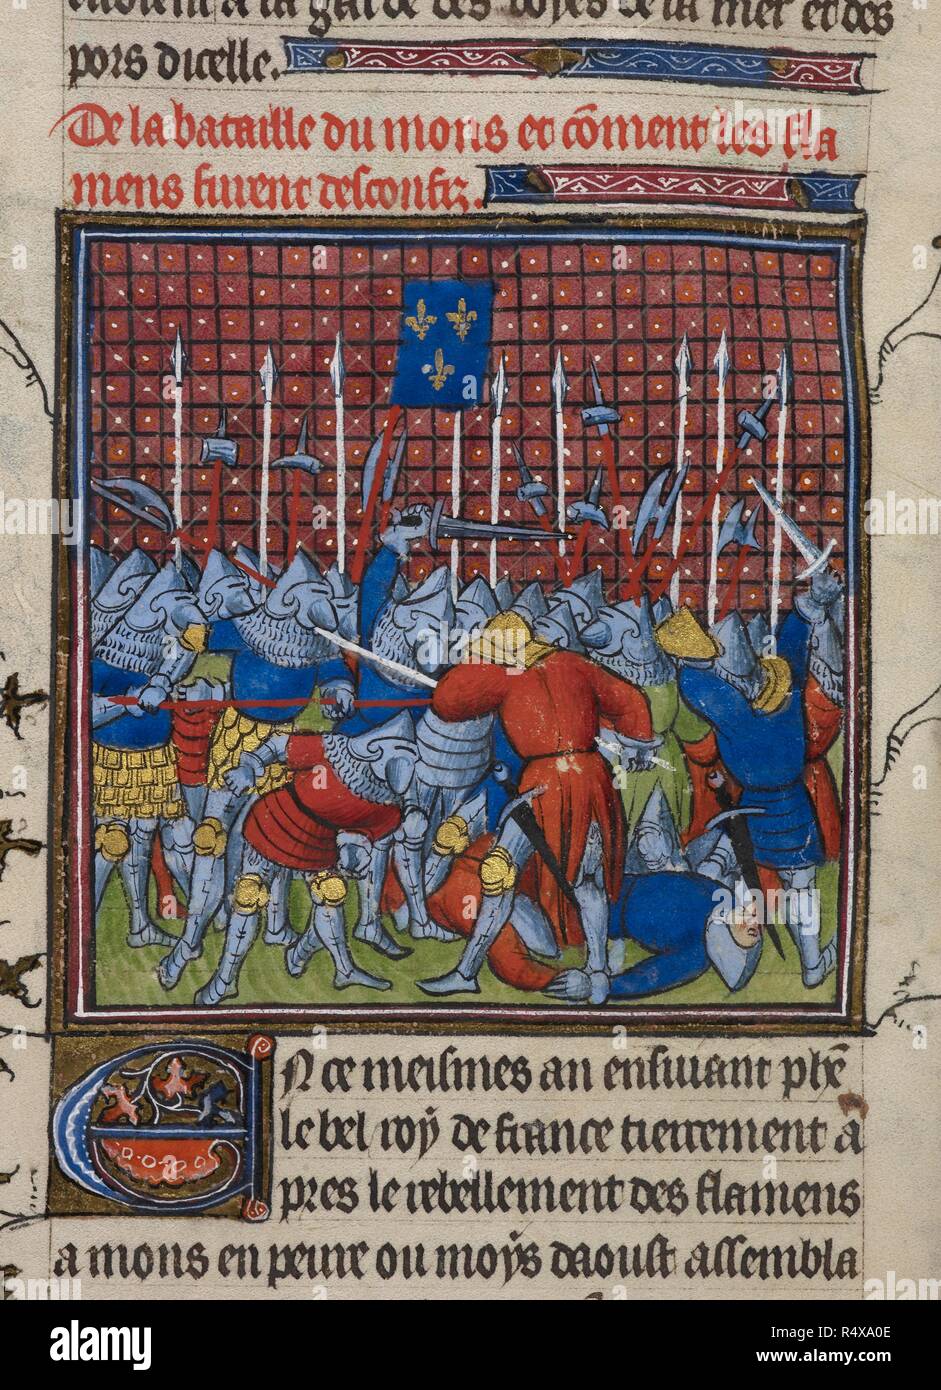 pors dicelle.
De la bataille du mons et cõment les fla
mens furent desconfiz.
En ce meismes an ensuivant phẽ
le bel roy de france tierrement a
pres le rebellement des flamens
a mons en peure ou moys daoust assembla
alamy
Image ID: R4XA0E
www.alamy.com